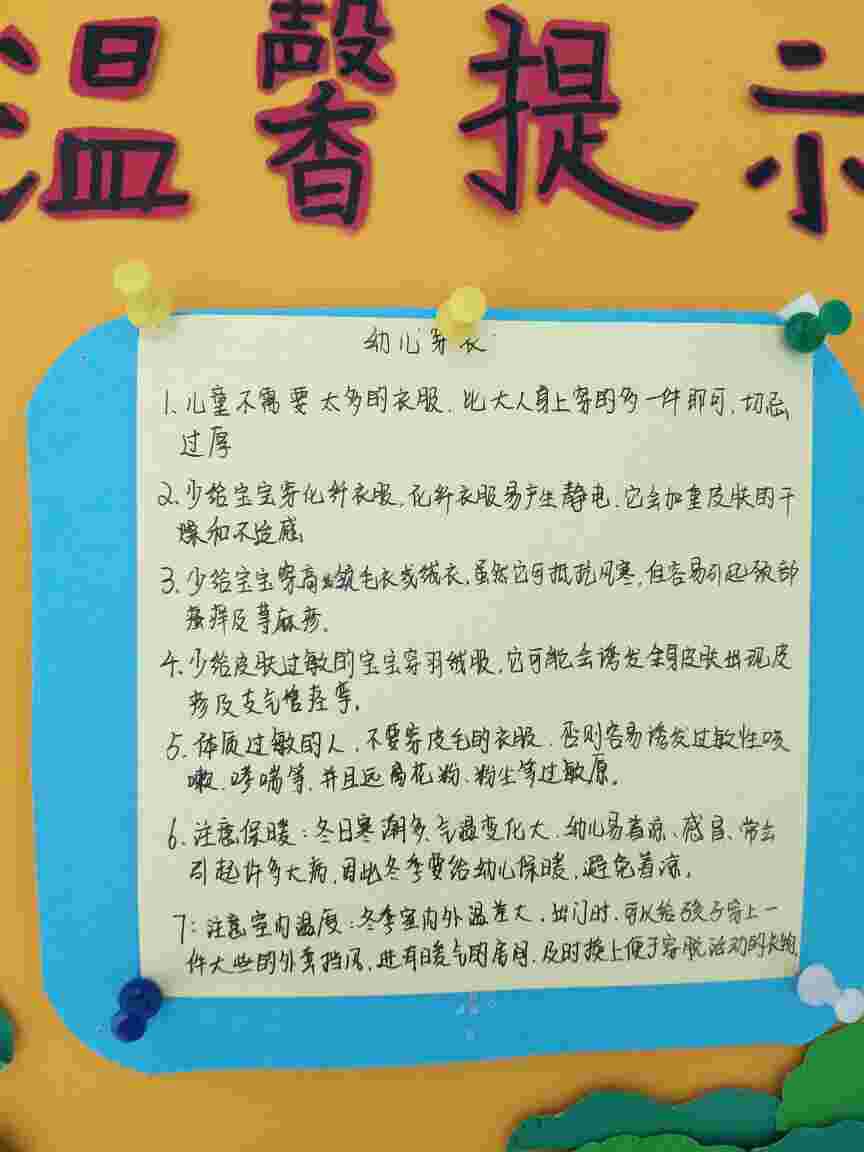 温馨提示
幼儿穿衣
1.儿童不需要太多的衣服.比大人身上穿的多一件即可.切忌
过厚
2.少给宝宝穿化纤衣服.化纤衣服易产生静电.它会加重皮肤的干
燥和不适感
3.少给宝宝穿高领毛衣或绒衣.虽然它可抵抗风寒.但容易引起颈部
瘙痒及荨麻疹.
4.少给皮肤过敏的宝宝穿羽绒服.它可能会诱发全身皮肤出现皮
疹及支气管痉挛.
5.体质过敏的人.不要穿皮毛的衣服.否则容易诱发过敏性咳
嗽.哮喘等.并且远离花粉、粉尘等过敏原。
6.注意保暖:冬日寒潮多.气温变化大.幼儿易着凉、感冒、常会
引起许多大病.因此冬季要给幼儿保暖,避免着凉.
7:注意室内温度:冬季室内外温差大.出门时.可以给孩子穿上一
件大些的外套挡风.进有暖气的房间.及时换上便于穿脱活动的衣物.